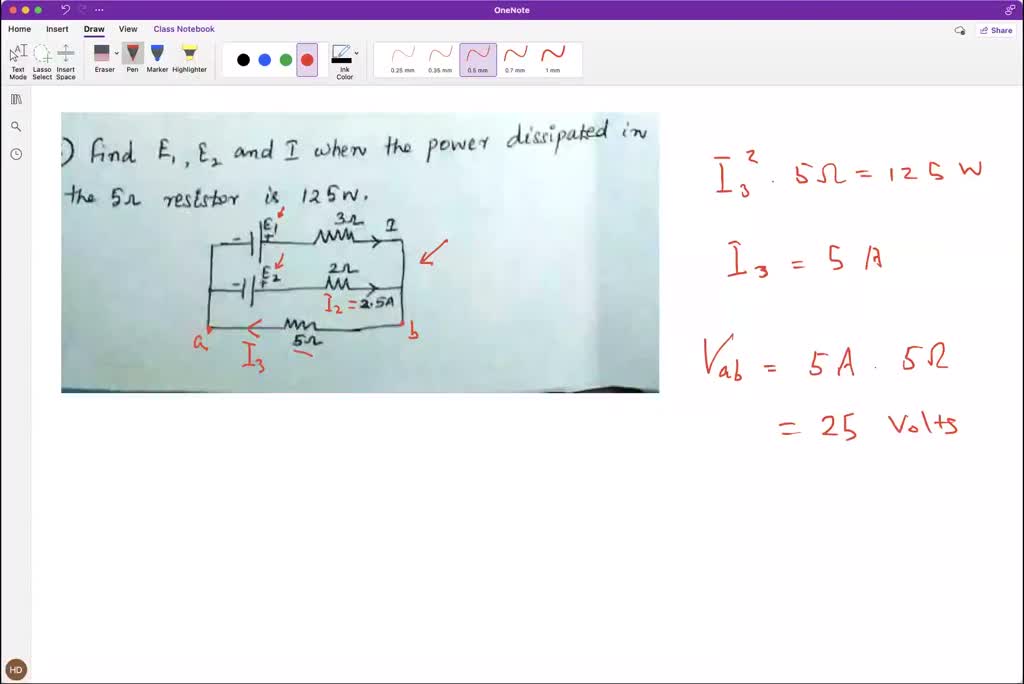 OneNote
Home Insert Draw View Class Notebook
Share
Text Mode
Lasso Select
Insert Space
Eraser
Pen
Marker
Highlighter
Ink Color
0.25 mm
0.35 mm
0.5 mm
0.7 mm
1 mm
) find E1, E2 and I when the power dissipated in
the 5Ω resistor is 125W.
- E1 + 3Ω I
- E2 + 2Ω
I2 = 2.5A
a I3 5Ω b
I3² . 5Ω = 125 W
I3 = 5 A
Vab = 5A . 5Ω
= 25 Volts
HD